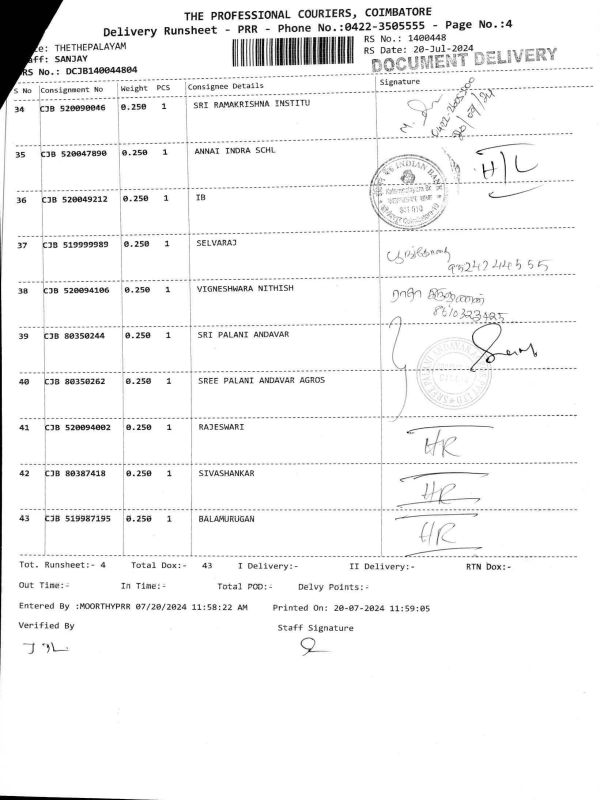 THE PROFESSIONAL COURIERS, COIMBATORE
Delivery Runsheet - PRR - Phone No.:0422-3505555 - Page No.:4
THETHEPALAYAM
RS No.: 1400448
SANJAY
RS Date: 20-Jul-2024
RS No.: DCJB140044804
DOCUMENT DELIVERY
S No Consignment No Weight PCS Consignee Details Signature
34 CJB 520090046 0.250 1 SRI RAMAKRISHNA INSTITU
35 CJB 520047890 0.250 1 ANNAI INDRA SCHL H/L
36 CJB 520049212 0.250 1 IB
INDIAN BANK
37 CJB 519999989 0.250 1 SELVARAJ
9524244555
38 CJB 520094106 0.250 1 VIGNESHWARA NITHISH
39 CJB 80350244 0.250 1 SRI PALANI ANDAVAR
40 CJB 80350262 0.250 1 SREE PALANI ANDAVAR AGROS
41 CJB 520094002 0.250 1 RAJESWARI HR
42 CJB 80387418 0.250 1 SIVASHANKAR HR
43 CJB 519987195 0.250 1 BALAMURUGAN HR
Tot. Runsheet:- 4 Total Dox:- 43 I Delivery:- II Delivery:- RTN Dox:-
Out Time:- In Time:- Total POD:- Delvy Points:-
Entered By :MOORTHYPRR 07/20/2024 11:58:22 AM Printed On: 20-07-2024 11:59:05
Verified By Staff Signature